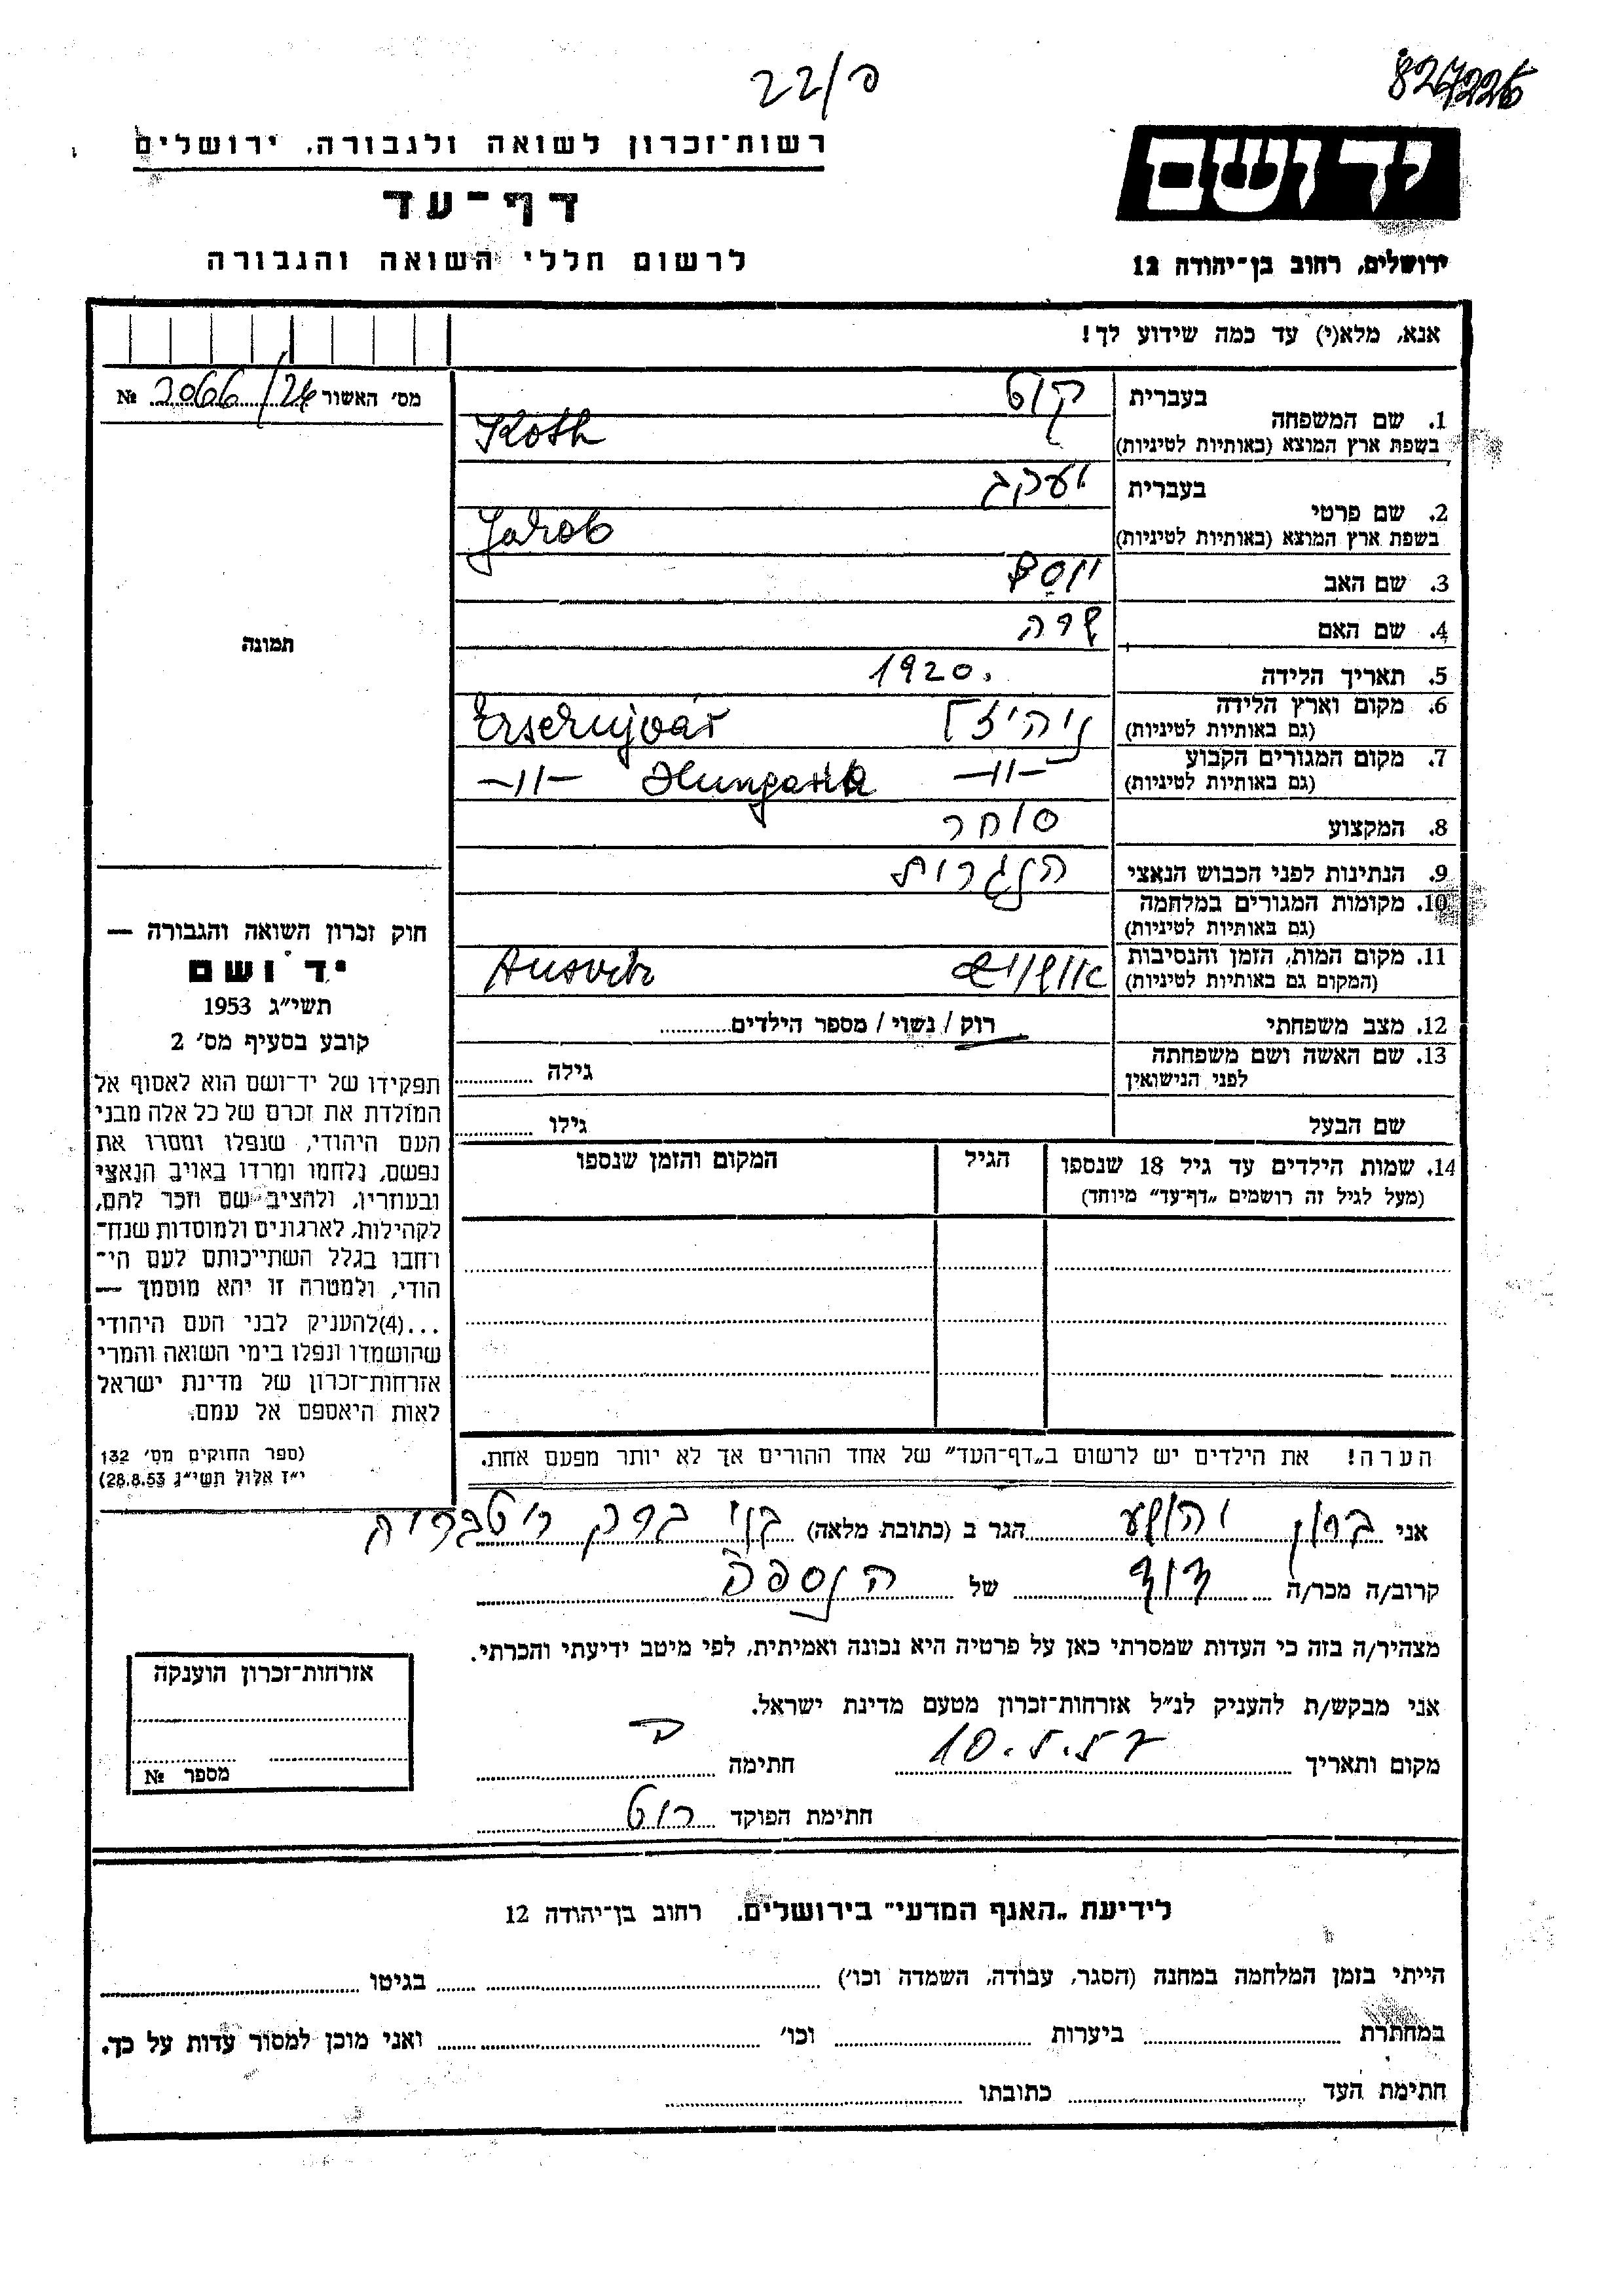 22/פ
827225
רשות־זכרון לשואה ולגבורה, ירושלים
דף־עד
לרשום חללי השואה והגבורה
יד ושם
ירושלים, רחוב בן־יהודה 12
אנא, מלא(י) עד כמה שידוע לך!
מס׳ האשור 24/2066 №
תמונה
חוק זכרון השואה והגבורה —
יד ושם
תשי״ג 1953
קובע בסעיף מס׳ 2
תפקידו של יד־ושם הוא לאסוף אל
המולדת את זכרם של כל אלה מבני
העם היהודי, שנפלו ומסרו את
נפשם, נלחמו ומרדו באויב הנאצי
ובעוזריו, ולהציב שם וזכר להם,
לקהילות, לארגונים ולמוסדות שנח־
רחבו בגלל השתייכותם לעם הי־
הודי, ולמטרה זו יהא מוסמך —
...(4)להעניק לבני העם היהודי
שהושמדו ונפלו בימי השואה והמרי
אזרחות־זכרון של מדינת ישראל
לאות היאספם אל עמם.
(ספר החוקים מס׳ 132
י״ז אלול תשי״ג 28.8.53)
בעברית קוט
1. שם המשפחה
בשפת ארץ המוצא (באותיות לטיניות) Koth
בעברית יעקב
2. שם פרטי
בשפת ארץ המוצא (באותיות לטיניות) Jakob
3. שם האב יוסף
4. שם האם שרה
5. תאריך הלידה 1920.
6. מקום וארץ הלידה
(גם באותיות לטיניות) Erserujvár
7. מקום המגורים הקבוע
(גם באותיות לטיניות) –״– –״–
8. המקצוע סוחר
9. הנתינות לפני הכבוש הנאצי הנגרית
10. מקומות המגורים במלחמה
(גם באותיות לטיניות)
11. מקום המות, הזמן והנסיבות
(המקום גם באותיות לטיניות) אושויץ Ausvitz
12. מצב משפחתי רוק / נשוי / מספר הילדים............
13. שם האשה ושם משפחתה
לפני הנישואין גילה ............
שם הבעל גילו ............
14. שמות הילדים עד גיל 18 שנספו הגיל המקום והזמן שנספו
(מעל לגיל זה רושמים „דף־עד״ מיוחד)
הערה! את הילדים יש לרשום ב„דף־העד״ של אחד ההורים אך לא יותר מפעם אחת.
אני ברון יהושע הגר ב (כתובת מלאה) בני ברק
קרוב/ה מכר/ה דוד של הנספה
מצהיר/ה בזה כי העדות שמסרתי כאן על פרטיה היא נכונה ואמיתית, לפי מיטב ידיעתי והכרתי.
אני מבקש/ת להעניק לנ״ל אזרחות־זכרון מטעם מדינת ישראל.
מקום ותאריך חתימה
חתימת הפוקד רוט
אזרחות־זכרון הוענקה
מספר №
לידיעת „האגף המדעי״ בירושלים. רחוב בן־יהודה 12
הייתי בזמן המלחמה במחנה (הסגר, עבודה, השמדה וכו׳) ............ בגיטו ............
במחתרת ............ ביערות ............ וכו׳ ............ ואני מוכן למסור עדות על כך.
חתימת העד ............ כתובתו ............